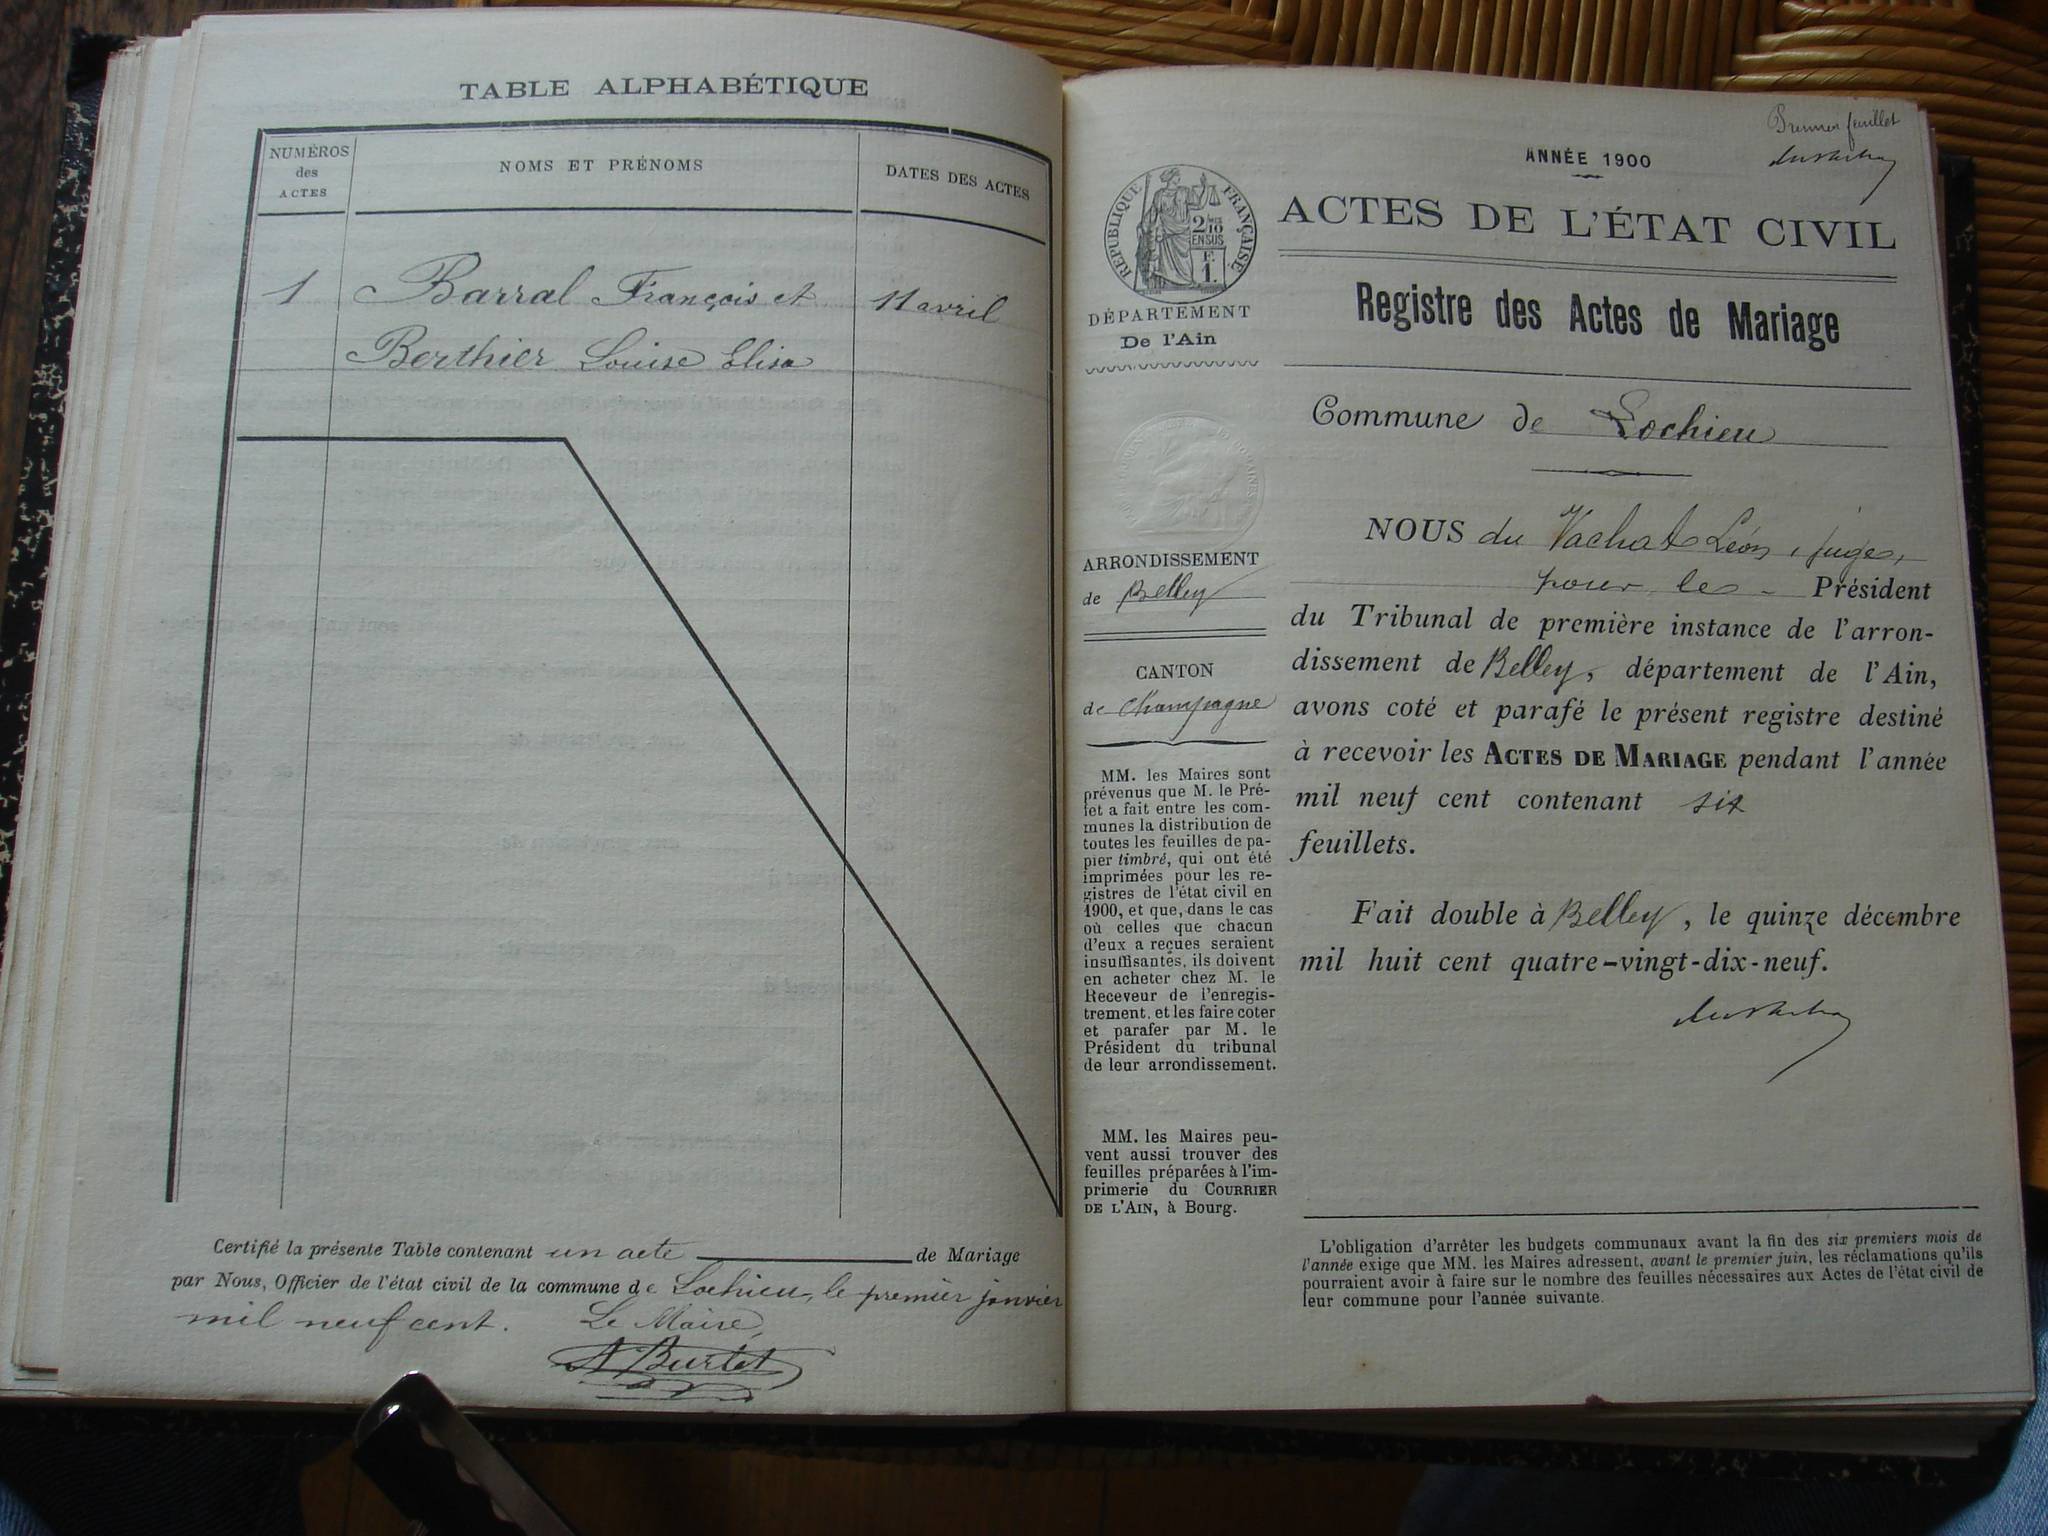 TABLE ALPHABÉTIQUE
NUMÉROS
des
ACTES
NOMS ET PRÉNOMS
DATES DES ACTES
1
Barral François et
11 avril
Berthier Louise Elisa
Certifié la présente Table contenant un acte de Mariage
par Nous, Officier de l'état civil de la commune de Lochieu, le premier janvier
mil neuf cent. Le Maire,
A Burtet
Premier feuillet
duVachat
ANNÉE 1900
RÉPUBLIQUE FRANÇAISE
2/10
EN SUS
F.
1.
DÉPARTEMENT
De l'Ain
ARRONDISSEMENT
de Belley
CANTON
de Champagne
MM. les Maires sont
prévenus que M. le Pré-
fet a fait entre les com-
munes la distribution de
toutes les feuilles de pa-
pier timbré, qui ont été
imprimées pour les re-
gistres de l'état civil en
1900, et que, dans le cas
où celles que chacun
d'eux a reçues seraient
insuffisantes, ils doivent
en acheter chez M. le
Receveur de l'enregis-
trement, et les faire coter
et parafer par M. le
Président du tribunal
de leur arrondissement.
MM. les Maires peu-
vent aussi trouver des
feuilles préparées à l'im-
primerie du COURRIER
DE L'AIN, à Bourg.
ACTES DE L'ÉTAT CIVIL
Registre des Actes de Mariage
Commune de Lochieu
NOUS du Vachat Léon, juge,
pour le - Président
du Tribunal de première instance de l'arron-
dissement de Belley, département de l'Ain,
avons coté et parafé le présent registre destiné
à recevoir les ACTES DE MARIAGE pendant l'année
mil neuf cent contenant six
feuillets.
Fait double à Belley, le quinze décembre
mil huit cent quatre-vingt-dix-neuf.
duVachat
L'obligation d'arrêter les budgets communaux avant la fin des six premiers mois de
l'année exige que MM. les Maires adressent, avant le premier juin, les réclamations qu'ils
pourraient avoir à faire sur le nombre des feuilles nécessaires aux Actes de l'état civil de
leur commune pour l'année suivante.